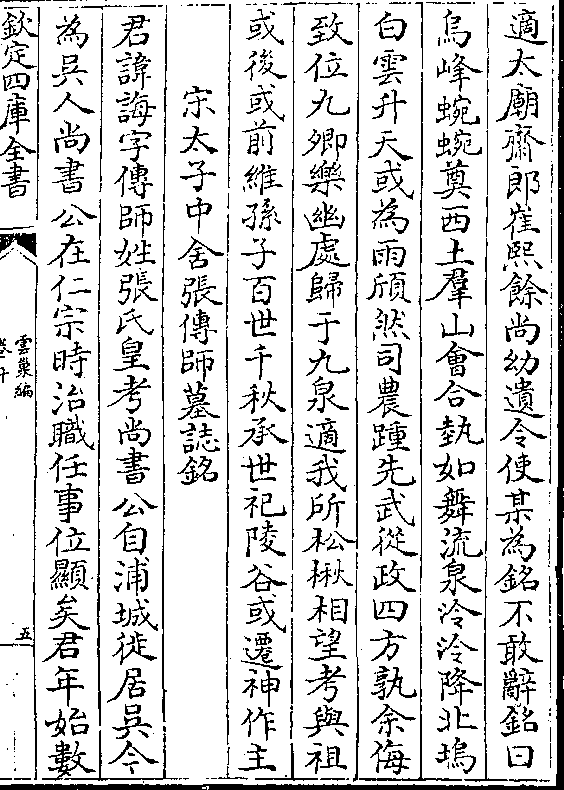 適太廟齋郎崔熙餘尚幼遺令使某為銘不敢辭銘曰
烏峰蜿蜿奠西土羣山會合埶如舞流泉泠泠降北塢
白雲升天或為雨頎然司農踵先武從政四方孰余侮
致位九卿樂幽處歸于九泉適我所松楸相望考與祖
或後或前維孫子百世千秋承世祀陵谷或遷神作主
宋太子中舍張傳師墓誌銘
君諱誨字傳師姓張氏皇考尚書公自浦城徙居吳今
為吳人尚書公在仁宗時治職任事位顯矣君年始數
欽定四庫全書
雲巢編
卷十
五